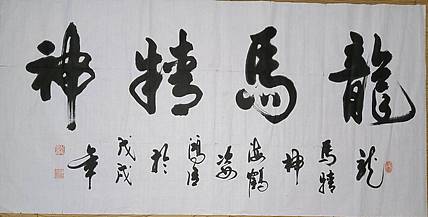 龍馬精神
龍馬精神海鶴姿
於戊戌年